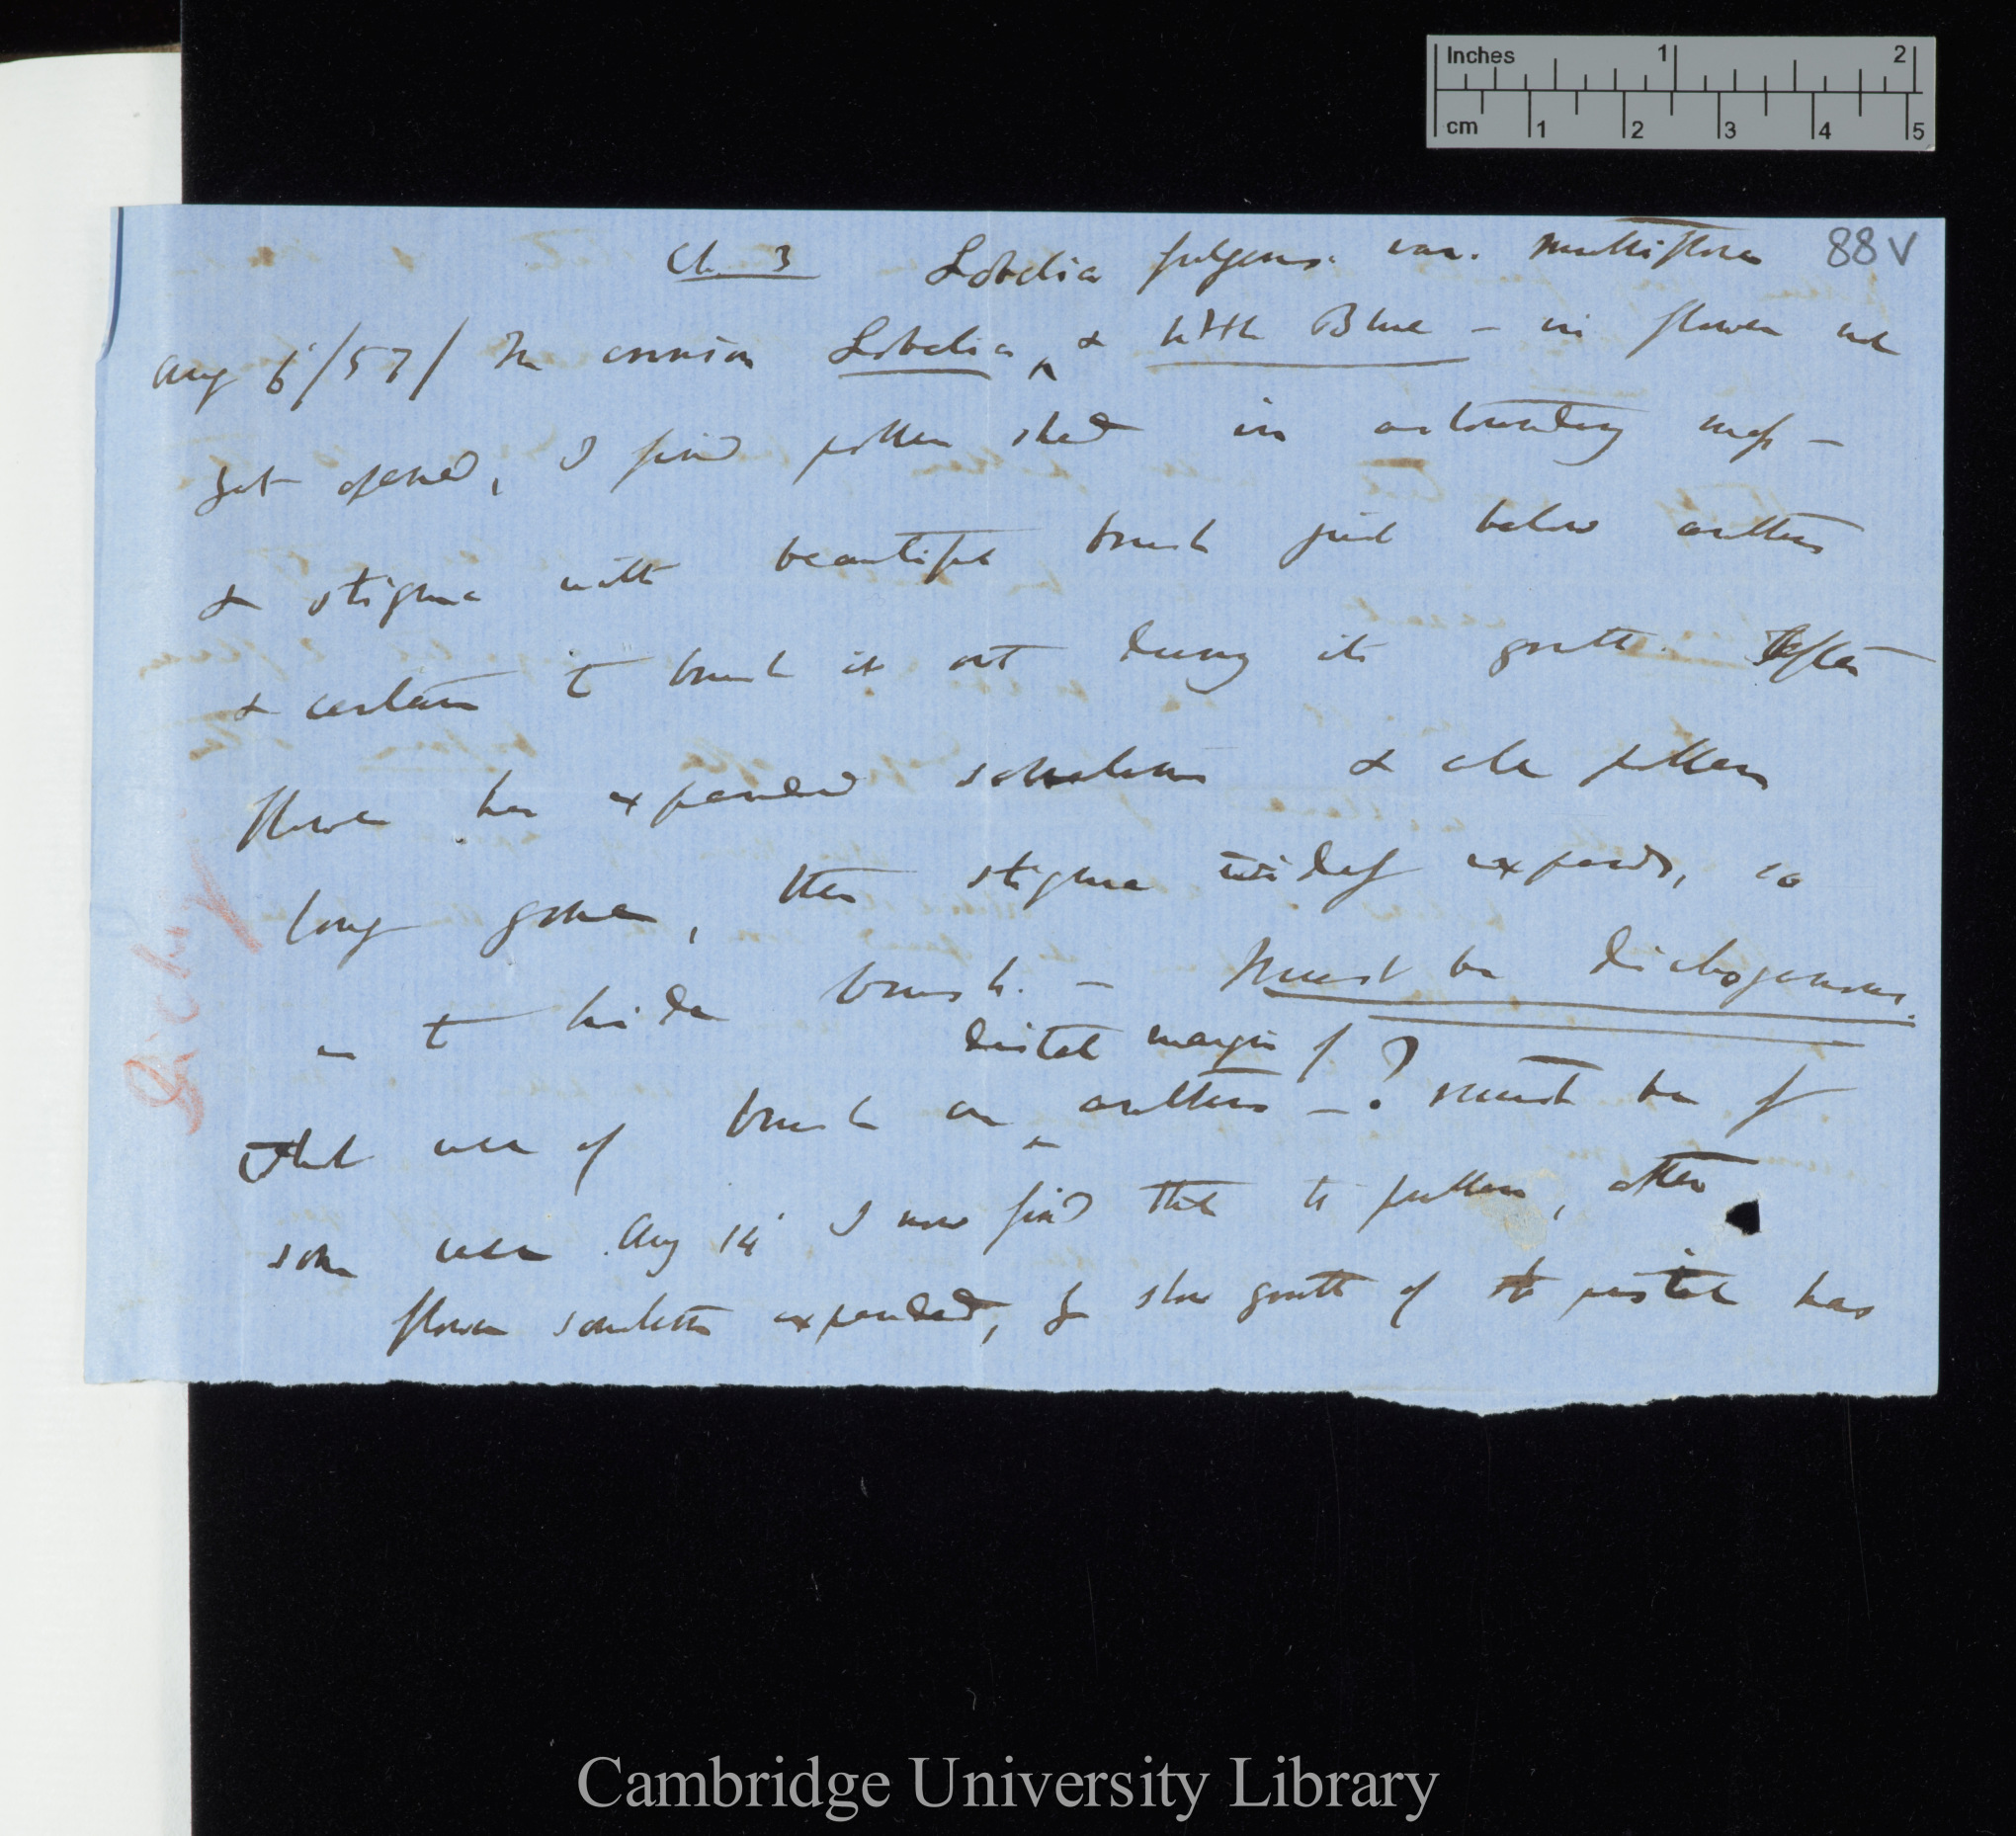 Inches 1 2
cm 1 2 3 4 5
88V
Ch. 3 Lobelia fulgens. var. multiflora
Aug 6'/57/ In common Lobelia ^ & little Blue — in flower not
yet opened, I find pollen shed in astounding mass —
& stigma with beautiful brush just below anthers
& certain to brush it out during its growth. After
flower has expanded sometime & all pollen
long gone, then stigma widely expands, so
as to hide brush. — Must be dichogamous.
distal margin of
What use of brush on ^ anthers —? must be of
some use. Aug 14' I now find that the pollen, after
flower sometime expanded, & slow growth of the pistil has
Dichy
Cambridge University Library